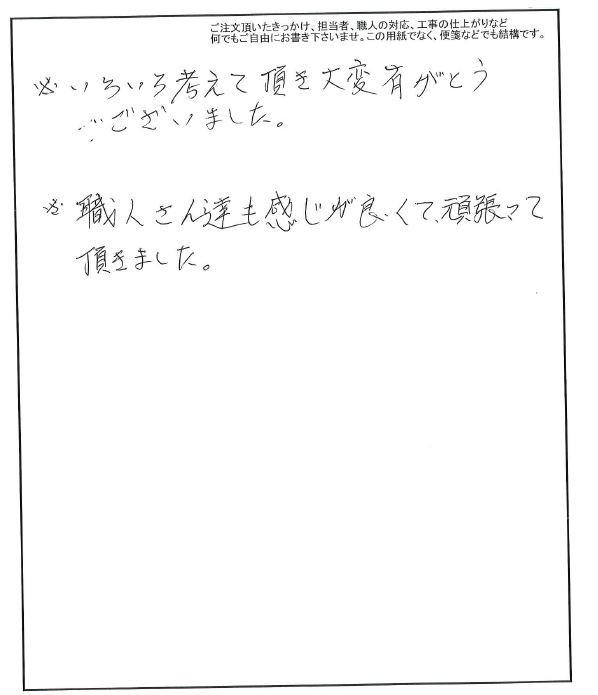 ご注文頂いたきっかけ、担当者、職人の対応、工事の仕上がりなど
何でもご自由にお書き下さいませ。この用紙でなく、便箋などでも結構です。
※いろいろ考えて頂き大変有がとう
ございました。
※職人さん達も感じが良くて、頑張って
頂きました。